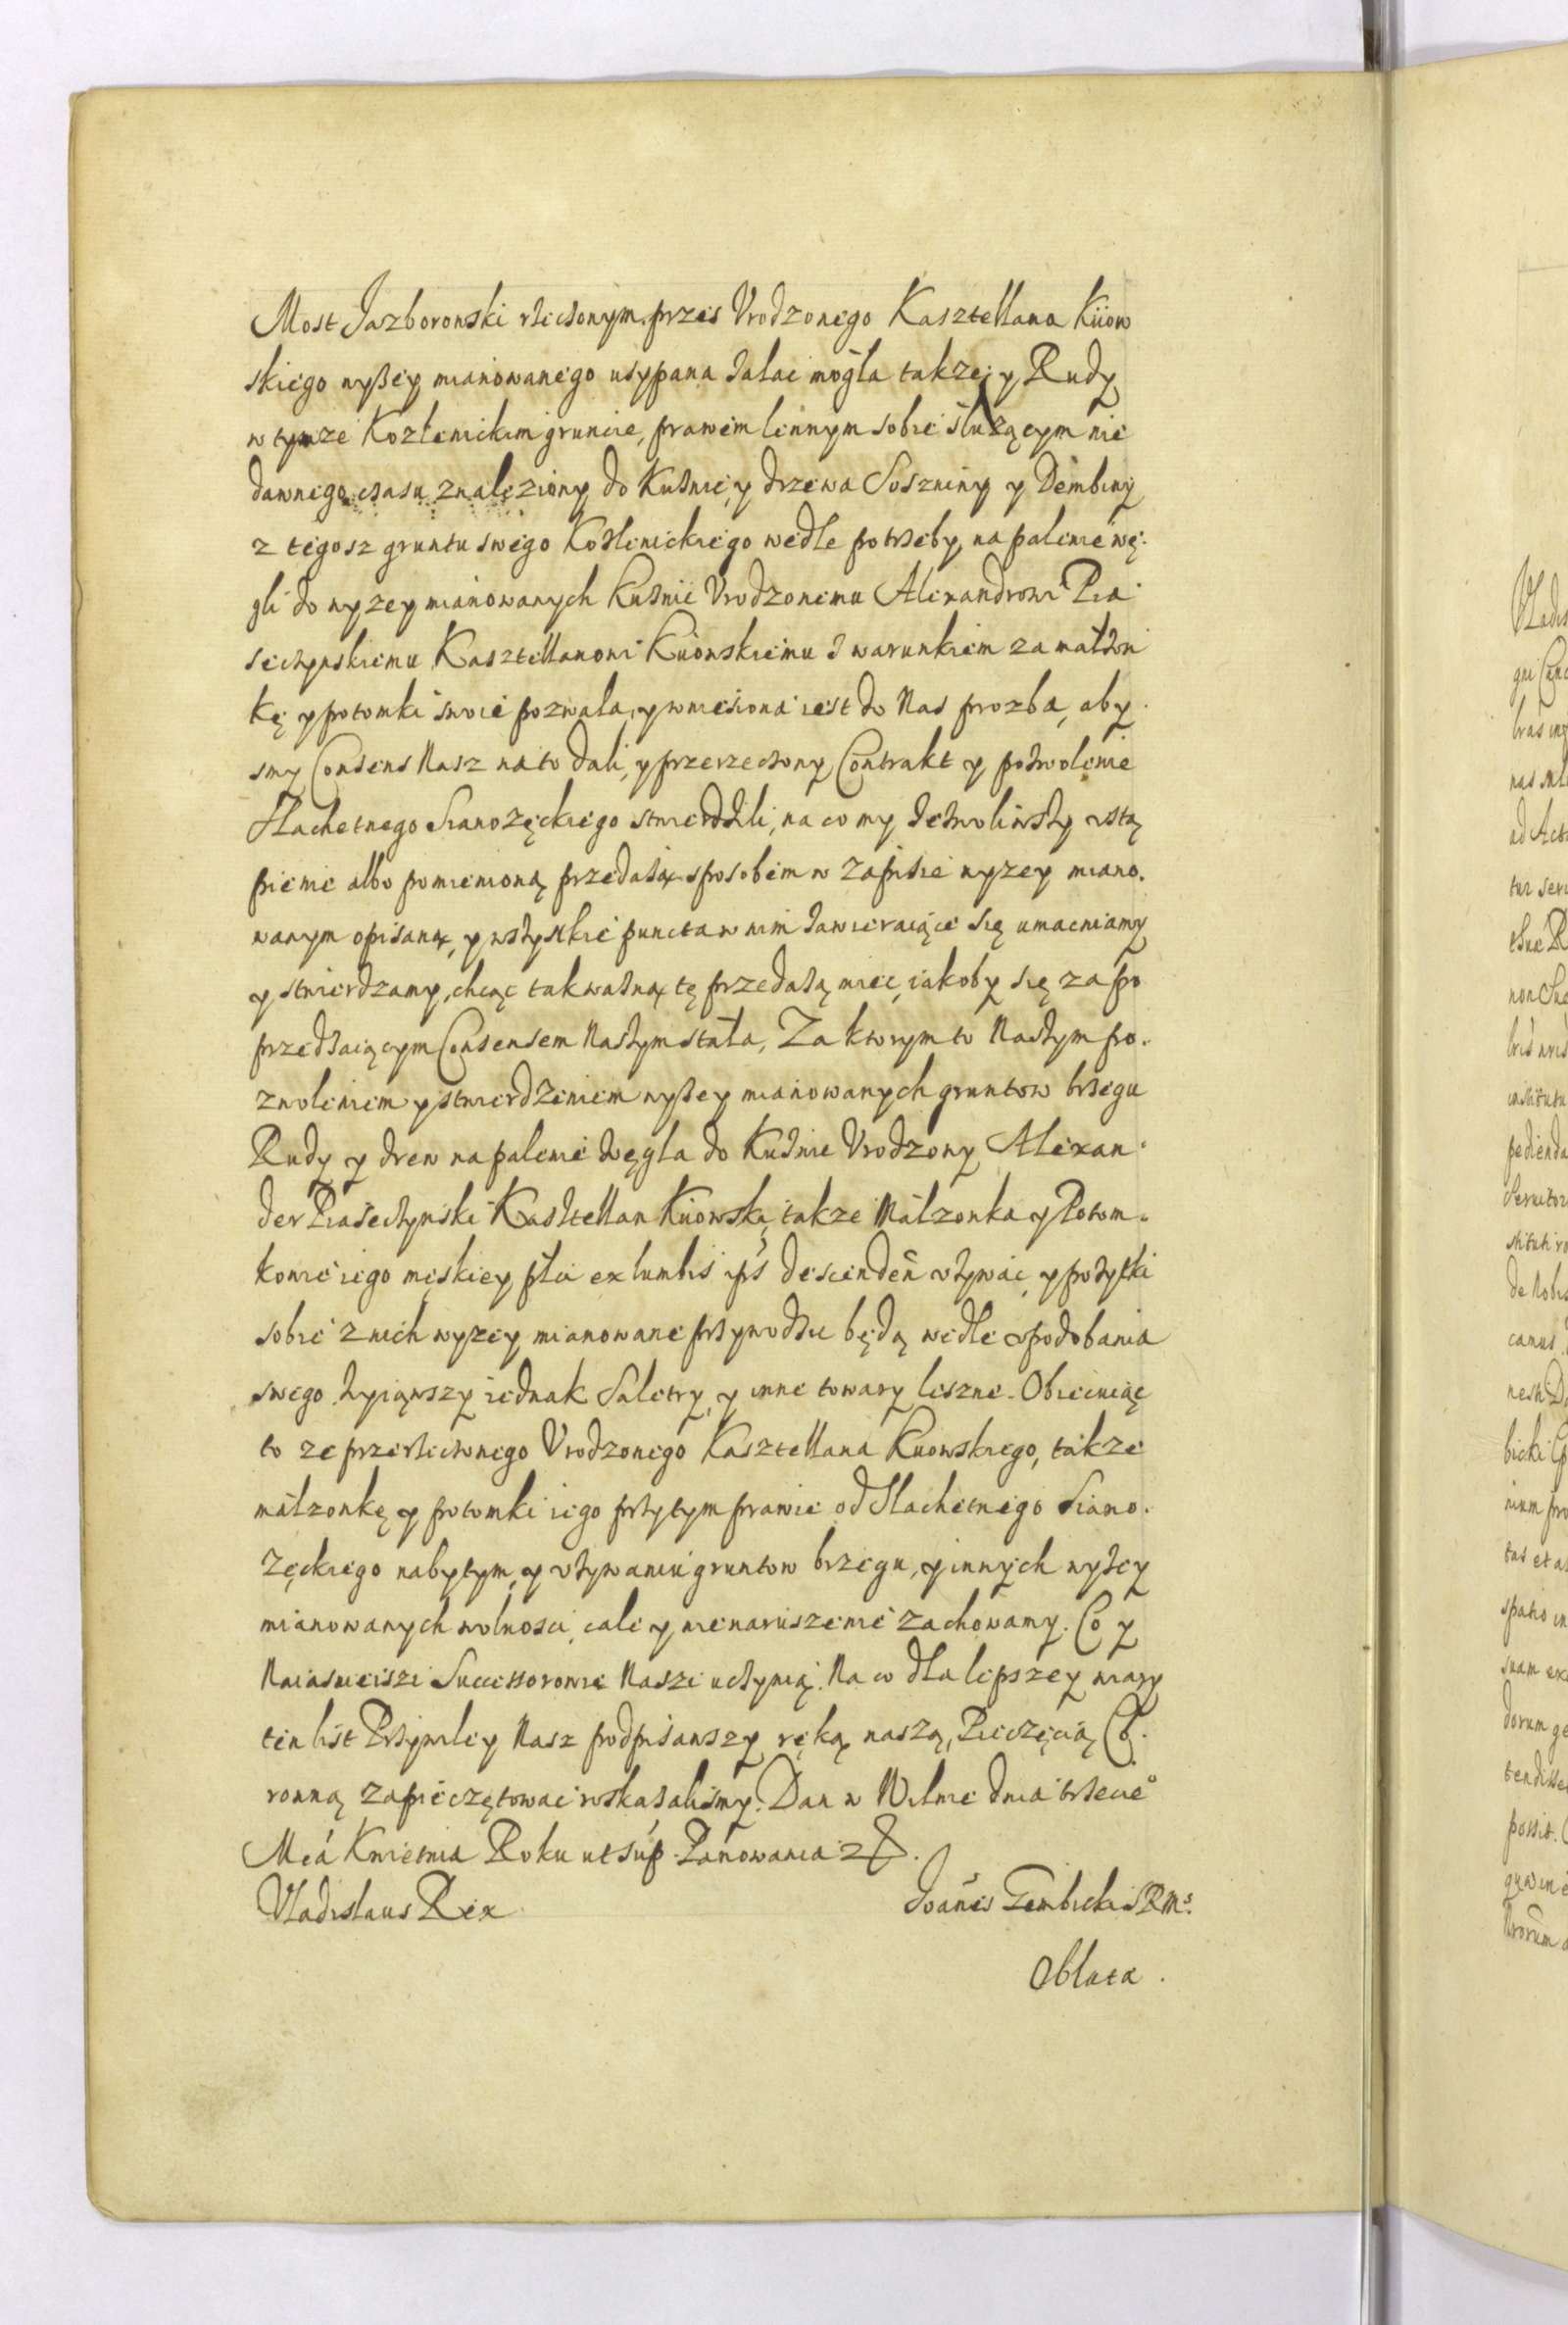 Most Jazborowski rzeczonym przes Vrodzonego Kasztellana Kiiow
skiego wyszey mianowanego usypana zalac mogła takze y Rudy
w tymze Kozlenickim gruncie, prawem lennym sobie słuzącym nie
dawnego czasu znalęziony do Kuznic y drzewa Soszniny y Dembiny
z tegosz gruntu swego Kozlenickiego wedle potrzeby, na palenie wę.
gli do wyzey mianowanych Kuznic Vrodzonemu Alexandrowi Pia
seczynskiemu Kasztellanowi Kiiowskiemu z warunkiem za małzon
kę y potomki swoie pozwala, y wniesiona iest do Nas prozba, aby
smy Consens Nasz na to dali, y przerzeczony Contrakt y pozwolenie
Slachetnego Sianozęckiego stwierdzili, na co my zezwoliwszy vstą
pienie albo pomienioną przedazą sposobem w zapisie wyzey miano.
wanym opisaną, y wszystkie puncta w nim zawieraiące się umacniamy
y stwierdzamy, chcąc tak wazną tę przedazą miec, iakoby się za po
przedzaiącym Consensem Naszym stała, Za ktorym to Naszym po.
zwoleniem y stwierdzeniem wyszey mianowanych gruntow brzegu
Rudy y drew na palenie węgla do Kuznic Vrodzony Alexan
der Piaseczynski Kasztellan Kiiowski, takze Małzonka y Potom.
kowie iego męskiey płci ex lumbis ips descenden vzywac, y pozytki
sobie z nich wyzey mianowane przywodzic będą wedle vpodobania
swego wyiąwszy iednak Saletry, y inne towary leszne. Obiecuiąc
to ze przerzeczonego Vrodzonego Kasztellana Kiiowskiego, takze
małzonkę y potomki iego przy tym prawie od Slachetnego Siano.
zęckiego nabytym, y vzywaniu gruntow brzegu, y innych wyzey
mianowanych wolnosci, cale y nienaruszenie zachowamy. Co y
Naiasnieiszi Successorowie Naszi uczynią. Na co dla lepszey wiary
ten list Przywiley Nasz podpisawszy ręką naszą, Pieczęcią Co.
ronną zapieczętowac roskazalismy. Dan w Wilnie dnia trzecie°
Mca Kwietnia Roku ut sup. Panowania
Vladislaus Rex
Joanes Gembicki SRMs.
Oblata.